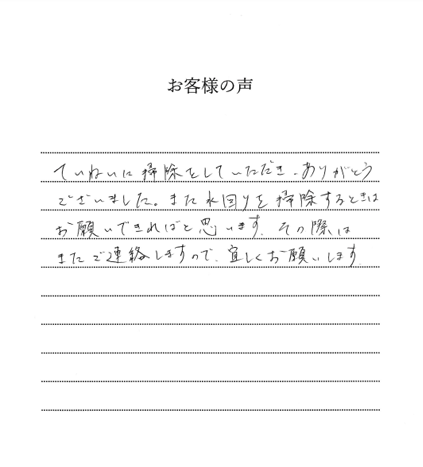 お客様の声
ていねいに掃除をしていただき、ありがとう
ございました。また水回りを掃除するときは
お願いできればと思います。その際は
またご連絡しますので、宜しくお願いします。